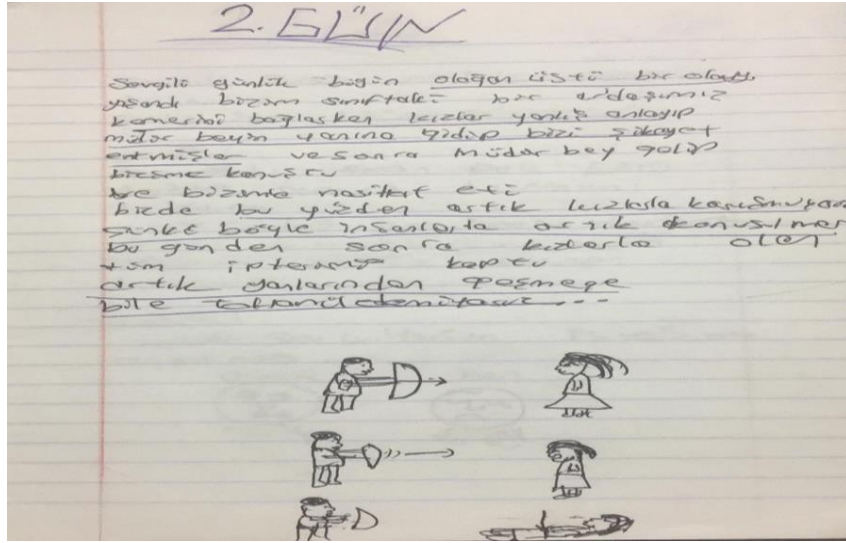 2. GÜN
Sevgili günlük bigün olağan üstü bir olay
yaşandı bizim sınıftaki bir
kemerini bağlarken kızlar yanlış anlayıp
müdür beyin yanına gidip bizi şikayet
entmişler ve sonra müdür bey gelip
bizimle konuştu
ve bizimle nasihat eti
bizde bu yüzden artık kızlarla
çünkü böyle insanlarla artık
bu günden sonra kızlarla olen
tüm koptu
artık yanlarından geçmeye
bile